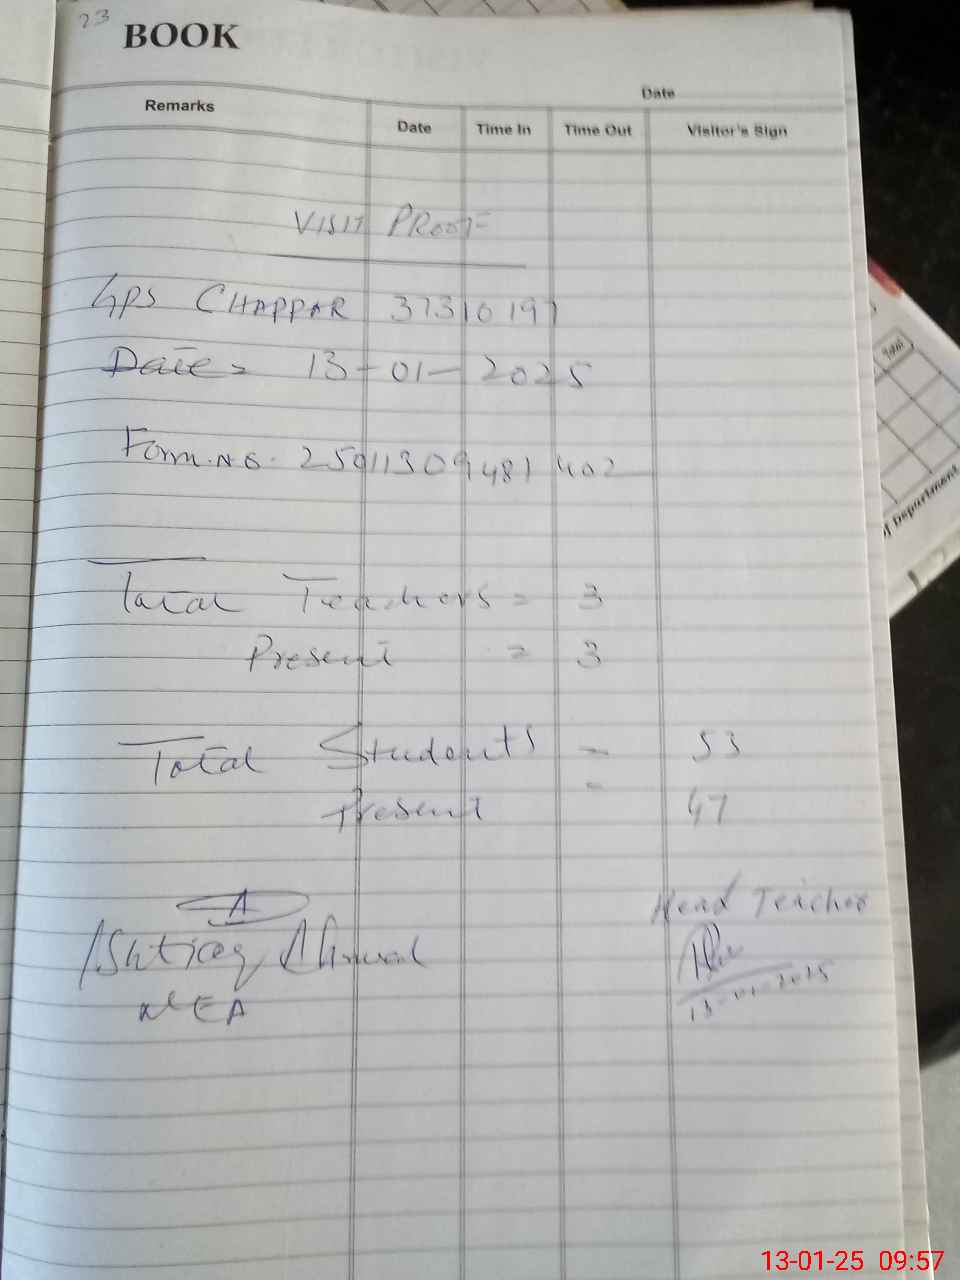 23
BOOK
Date
Remarks
Date
Time In
Time Out
Visitor's Sign
VISIT PROOF
GPS CHAPPAR 37310197
Date = 13-01-2025
Form. No. 25011309481402
Total Teachers = 3
Present = 3
Total Students = 53
Present = 47
A
Ishtiaq Ahmad
MEA
Head Teacher
13-01-2025
Total
Department
13-01-25 09:57